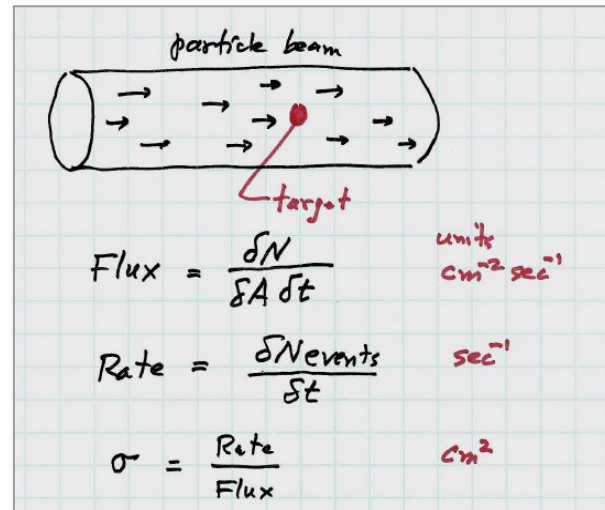 particle beam
target
units
Flux = δN / δA δt cm⁻² sec⁻¹
Rate = δNevents / δt sec⁻¹
σ = Rate / Flux cm²